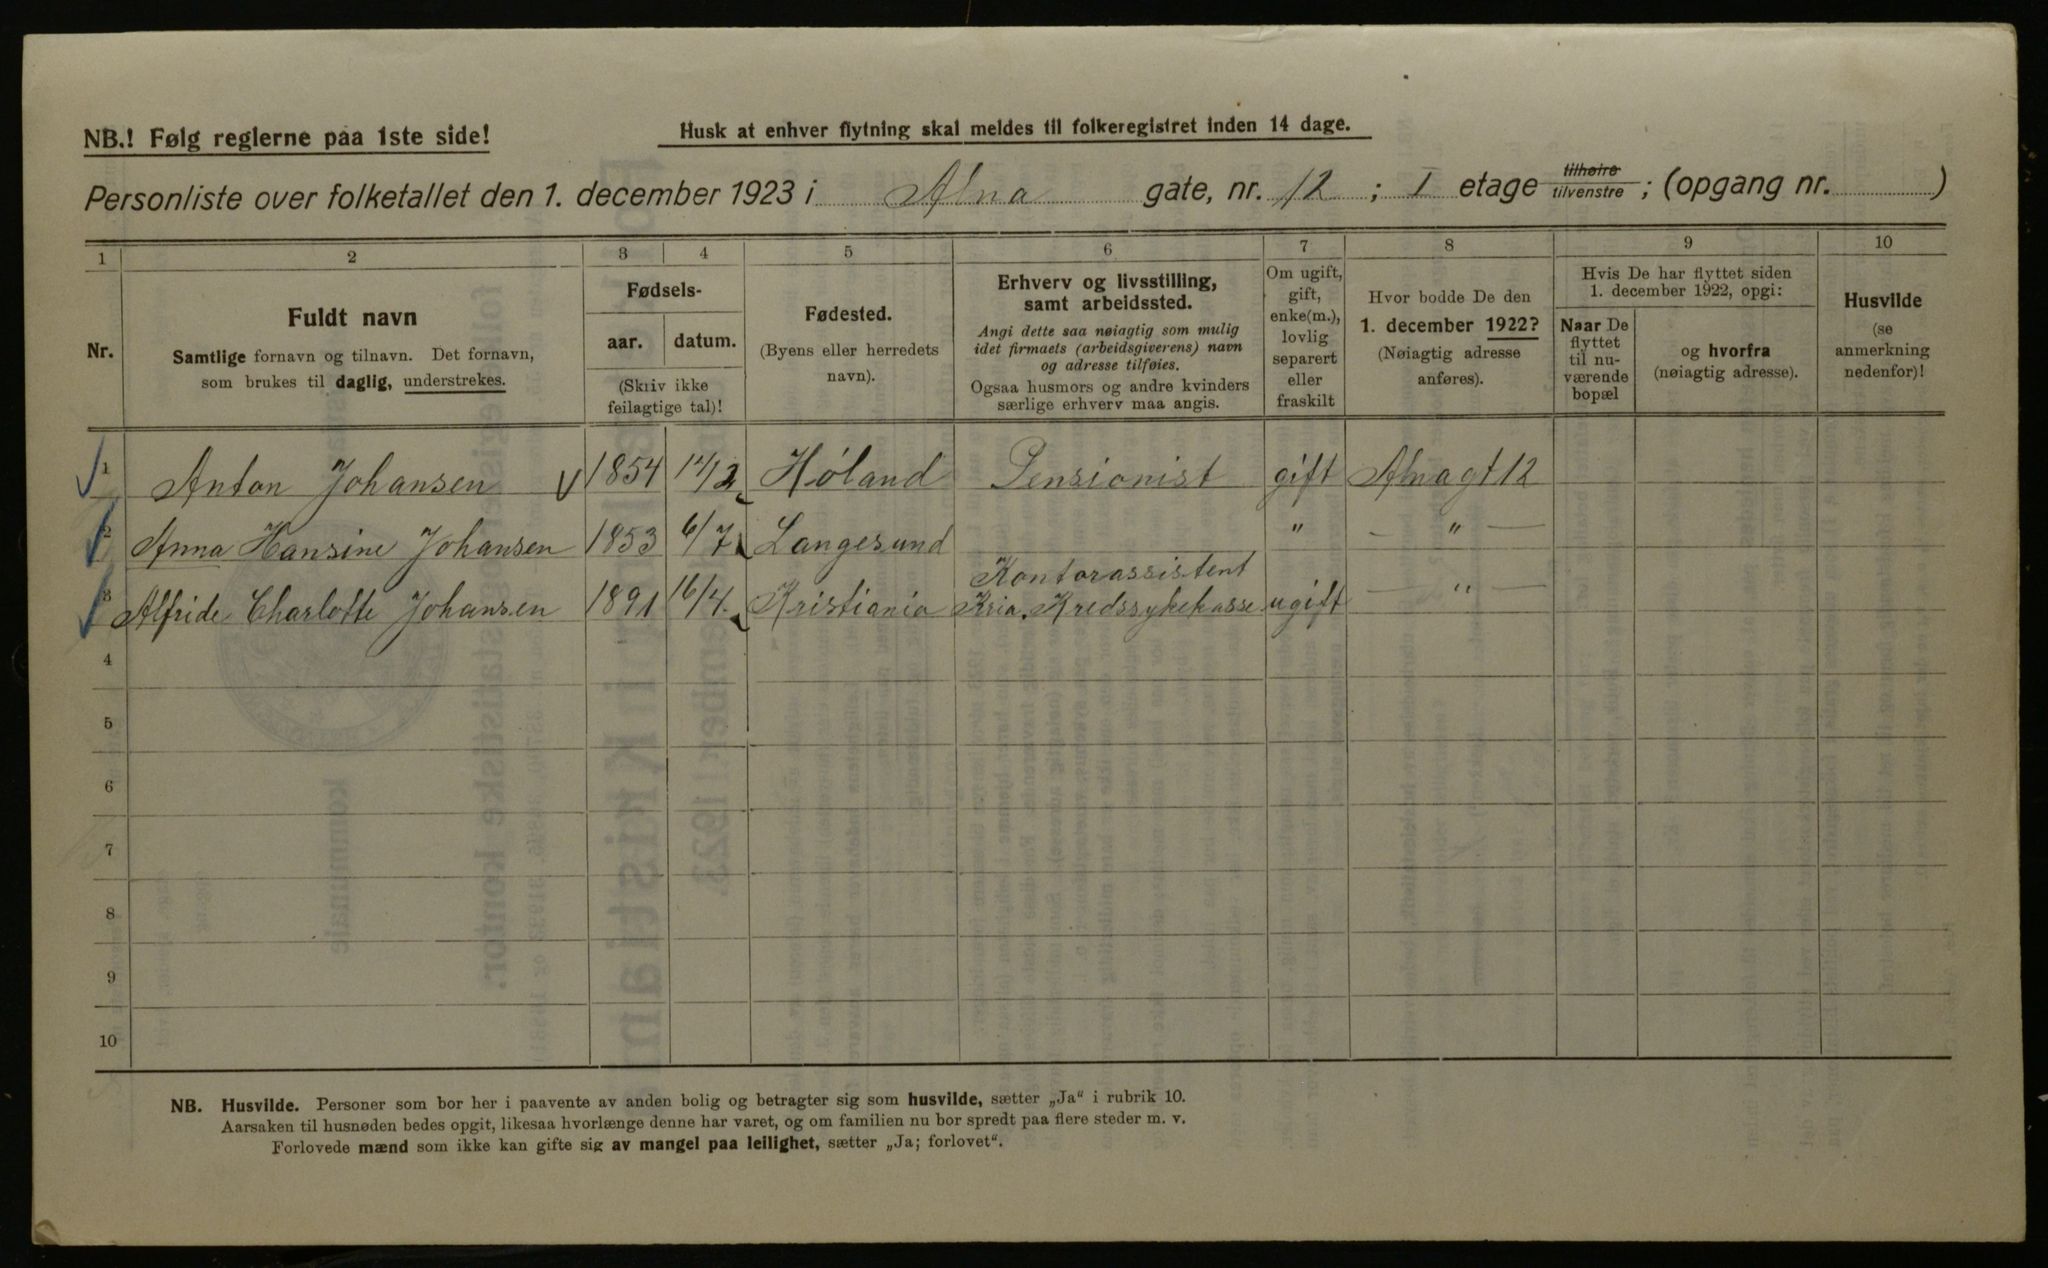 NB.! Følg reglerne paa 1ste side!
Husk at enhver flytning skal meldes til folkeregistret inden 14 dage.
Personliste over folketallet den 1. december 1923 i Alna gate, nr. 12 ; I etage tilhøire tilvenstre ; (opgang nr. )
1 2 3 4 5 6 7 8 9 10
Nr.
Fuldt navn
Samtlige fornavn og tilnavn. Det fornavn,
som brukes til daglig, understrekes.
Fødsels-
aar. datum.
(Skriv ikke
feilagtige tal)!
Fødested.
(Byens eller herredets
navn).
Erhverv og livsstilling,
samt arbeidssted.
Angi dette saa nøiagtig som mulig
idet firmaets (arbeidsgiverens) navn
og adresse tilføies.
Ogsaa husmors og andre kvinders
særlige erhverv maa angis.
Om ugift,
gift,
enke(m.),
lovlig
separert
eller
fraskilt
Hvor bodde De den
1. december 1922?
(Nøiagtig adresse
anføres).
Hvis De har flyttet siden
1. december 1922, opgi:
Naar De
flyttet
til nu-
værende
bopæl
og hvorfra
(nøiagtig adresse).
Husvilde
(se
anmerkning
nedenfor)!
1 Anton Johansen 1854 Høland Pensionist gift Alnagt 12
2 Anna Hansine Johansen 1853 6/7 Langesund " — " —
Kontorassistent
3 Alfride Charlotte Johansen 1891 16/4. Kristiania Kria. Kredssykekasse ugift — " —
4
5
6
7
8
9
10
NB. Husvilde. Personer som bor her i paavente av anden bolig og betragter sig som husvilde, sætter „Ja" i rubrik 10.
Aarsaken til husnøden bedes opgit, likesaa hvorlænge denne har varet, og om familien nu bor spredt paa flere steder m. v.
Forlovede mænd som ikke kan gifte sig av mangel paa leilighet, sætter „Ja; forlovet".